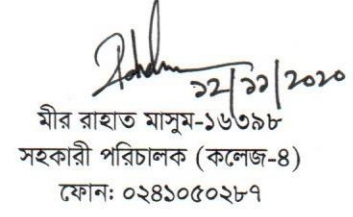 ১২/১১/২০২০
মীর রাহাত মাসুম-১৬৩৯৮
সহকারী পরিচালক (কলেজ-৪)
ফোন: ০২৪১০৫০২৮৭